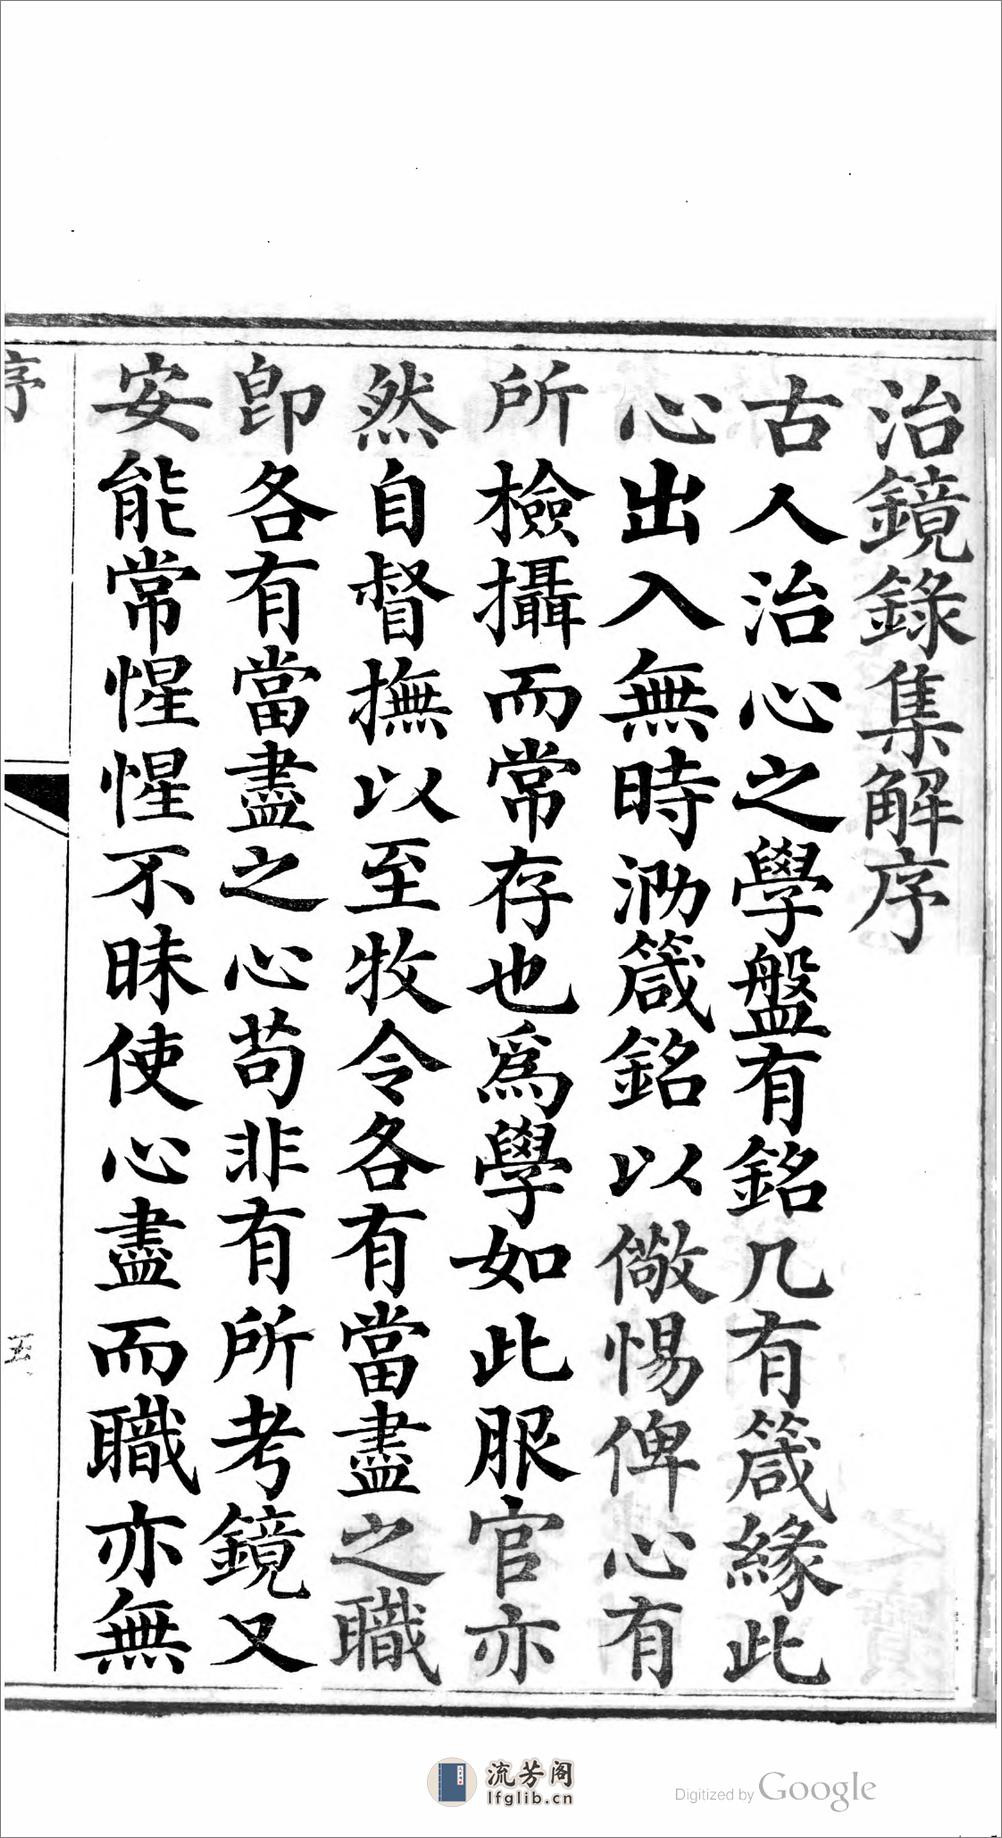 治鏡錄集解序
古人治心之學盤有銘几有箴緣此
心出入無時泐箴銘以儆惕俾心有
所檢攝而常存也爲學如此服官亦
然自督撫以至牧令各有當盡之職
卽各有當盡之心苟非有所考鏡又
安能常惺惺不昧使心盡而職亦無
序
五
流芳阁
lfglib.cn
Digitized by Google